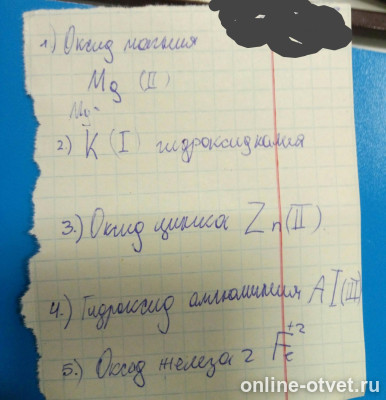 1) Оксид магния
Mg (II)
Mg
2.) K (I) гидроксид калия
3.) Оксид цинка Zn(II)
4.) Гидроксид аллюминия Al(III)
5.) Оксид железа 2 Fe+2
online-otvet.ru